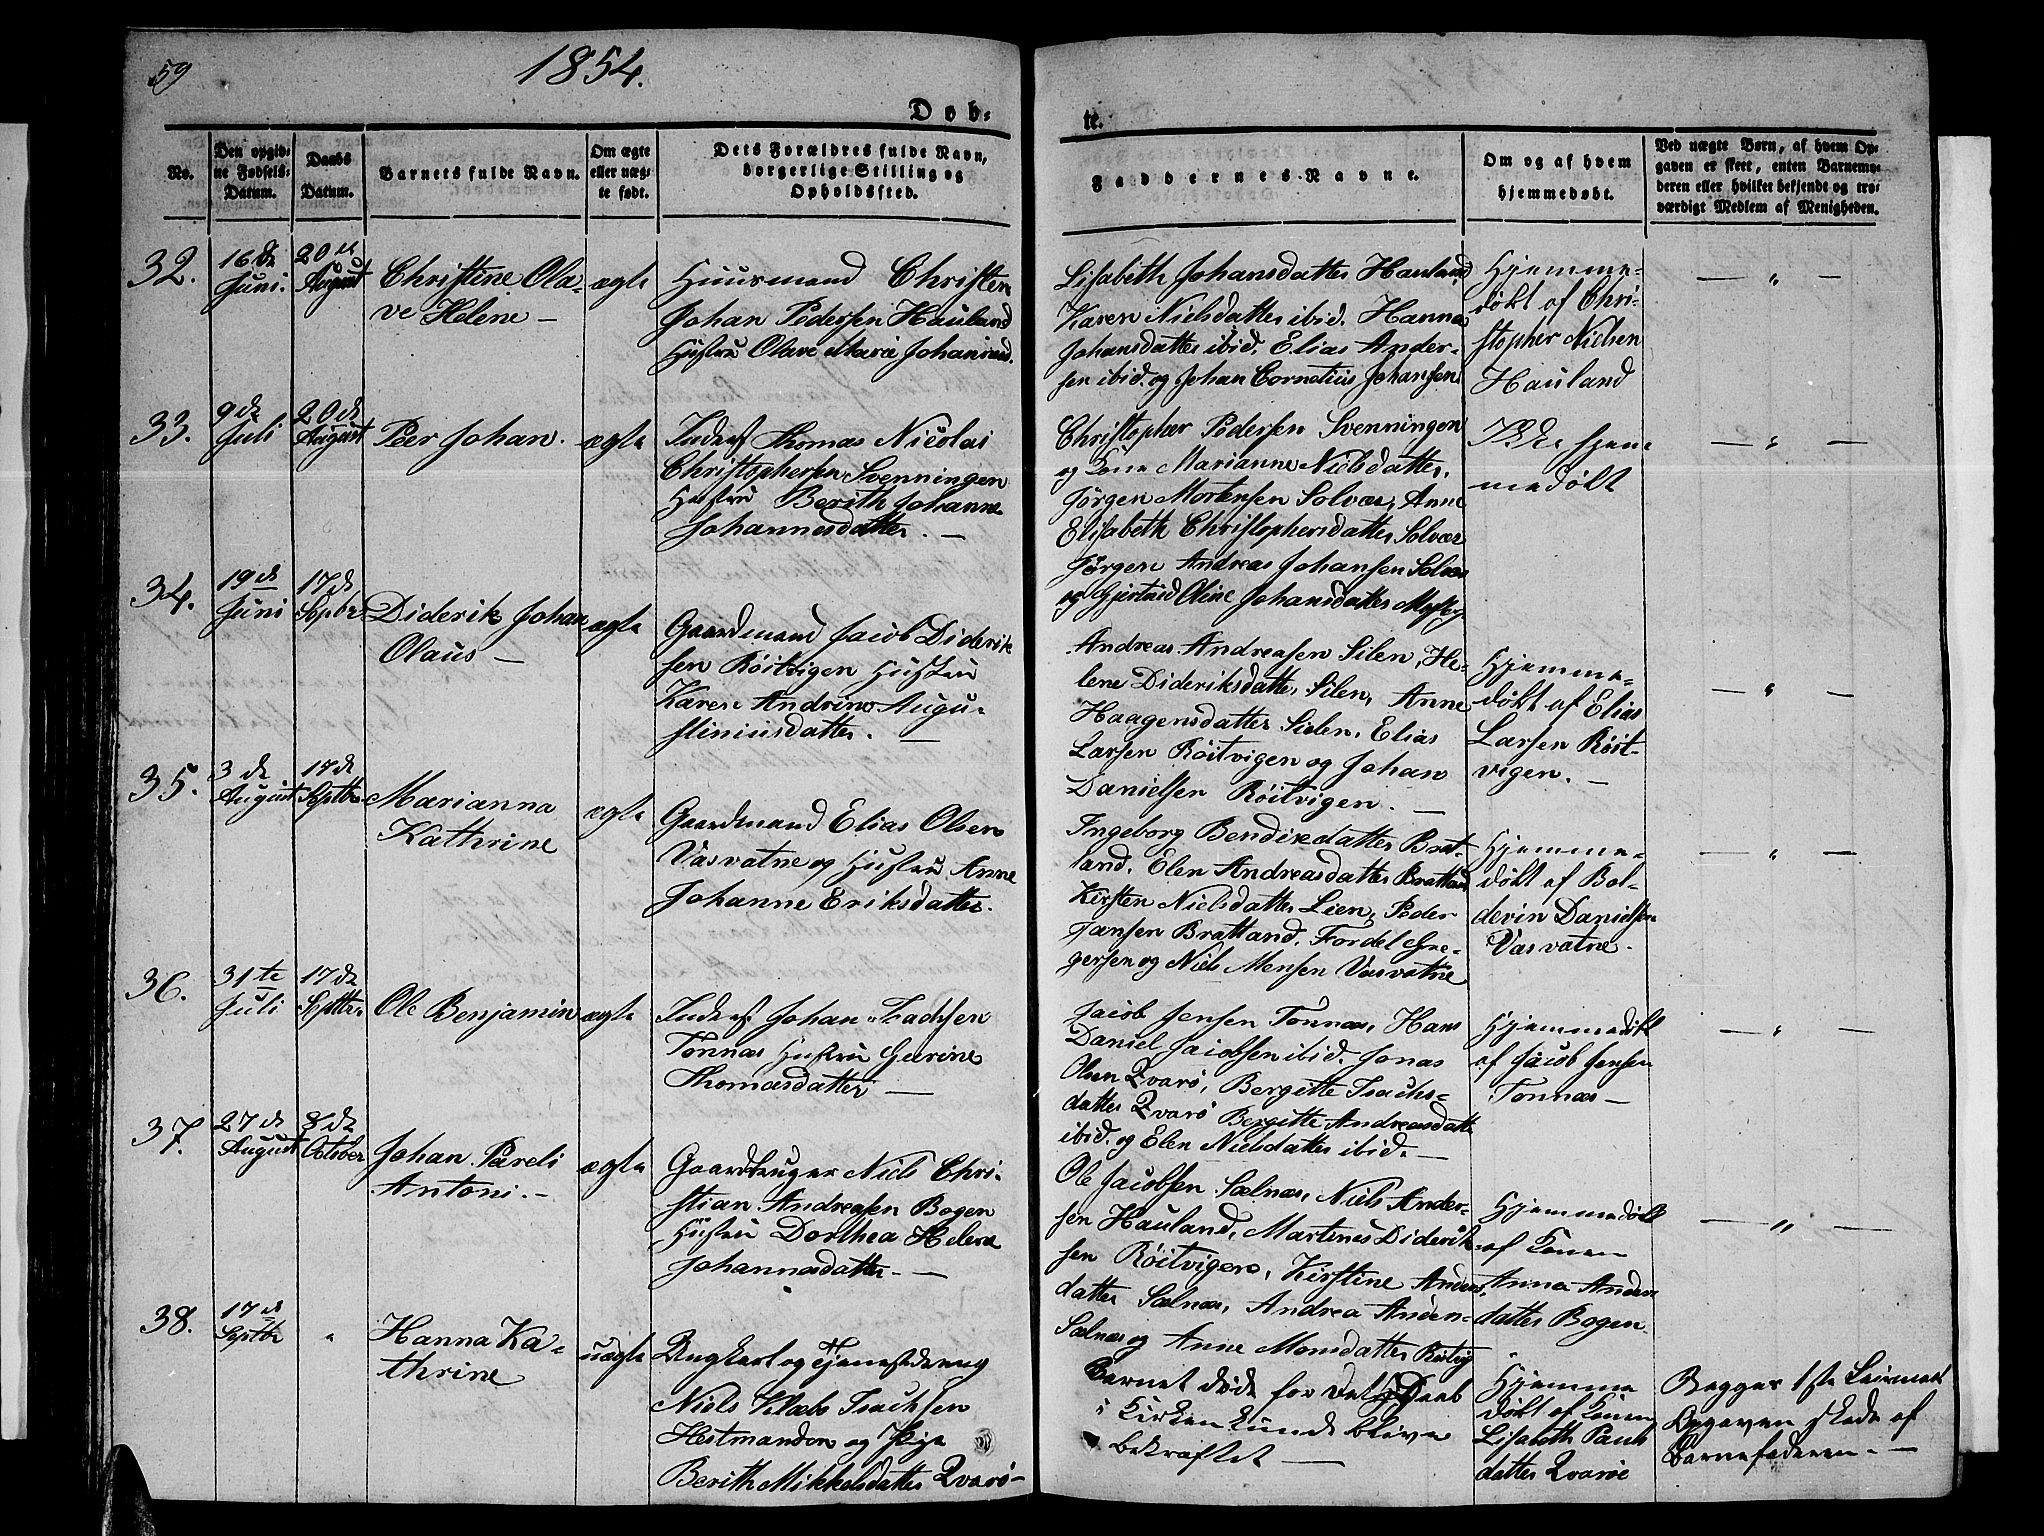 59
1854.
Døb-
te.
No.
Den opgiv-
ne Fødsels-
Datum.
Daabs
Datum.
Barnets fulde Navn.
Om ægte
eller uæg-
te født.
Dets Forældres fulde Navn,
borgerlige Stilling og
Opholdssted.
Faddernes Navne.
Om og af hvem
hjemmedøbt.
Ved uægte Børn, af hvem Op-
gaven er skeet, enten Barnemo-
deren eller hvilket bekjendt og tro-
værdigt Medlem af Menigheden.
32.
16de
Juni.
20de
August
Christine Ola-
ve Helene —
ægte
Huusmand Christen
Johan Pedersen Hauland
Hustru Olave Maria Johansd.
Lisabeth Johansdatter Hauland,
Karen Nielsdatter ibid. Hanna
Johansdatter ibid, Elias Ander-
sen ibid. og Johan Cornelius Johansen
Hjemme-
døbt af Chri-
stopher Nielsen
Hauland
— " —
33.
9de
Juli
20de
August
Peer Johan.
ægte
Inderst Thomas Nicolai
Christophersen Svenningen
Hustru Berith Johanna
Johannesdatter. —
Christopher Pedersen Svenningen
og Kone Marianne Nielsdatter,
Jørgen Mortensen Solvær, Anne
Elisabeth Christophersdatter Solvær
Jørgen Andreas Johansen Solvær
og Gjertrud Oline Johansdatter
Ikke hjem-
medøbt
— " —
34.
19de
Juni
17de
Septbr
Diderik Johan
Olaus —
ægte
Gaardmand Jacob Diderik
sen Röitvigen Hustru
Karen Andrine Augu-
stiniusdatter. —
Andreas Andreasen Silen, He-
lene Dideriksdatter Silen, Anne
Haagensdatter Silen, Elias
Larsen Röitvigen og Johan
Danielsen Röitvigen. —
Hjemme-
døbt af Elias
Larsen Röit-
vigen. —
— " —
35.
3de
August
17de
Septbr
Marianna
Kathrine
ægte
Gaardmand Elias Olsen
Vasvatne og Hustru Anne
Johanne Eriksdatter.
Ingeborg Bendixdatter Brat-
land, Elen Andreasdatter Bratland
Kirsten Nielsdatter Leen, Peder
Jansen Bratland, Fordel Gre-
gersen og Niels Monsen Vasvatne
Hjemme-
døbt af Bol-
devin Danielsen
Vasvatne.
— " —
36.
31te
Juli
17de
Septbr.
Ole Benjamin
ægte
Inderst Johan Isachsen
Tonnæs Hustru Gurine
Thomasdatter —
Jacob Jensen Tonnæs, Hans
Daniel Jacobsen ibid. Jonas
Olsen Qvarø, Bergitte Isachs-
datter Qvarø Bergitte Andreasdatt
ibid. og Elen Nielsdatter ibid. —
Hjemmedøbt
af Jacob Jensen
Tonnæs —
— " —
37.
27de
August
8de
October
Johan Pareli
Antoni. —
ægte
Gaardbruger Niels Chri-
stian Andreasen Bogen
Hustru Dorthea Helena
Johannasdatter. —
Ole Jacobsen Sælnæs, Niels Ander-
sen Hauland, Martines Diderik-
sen Röitvigen, Kirstine Anders,
datter Sælnæs, Andrea Anders-
Sælnæs og Anne Monsdatter Röitvig
Hjemmedøbt
af Konen
Anna Anders
datter Bogen.
— " —
38.
17de
Septbr
"
Hanna Ka-
thrine
uægte
Ungkarl og Tjenestedreng
Niels Klæbo Isachsen
Hestmandøn og Pige
Berith Mikkelsdatter Qvarø —
Barnet døde før Daab
i Kirken kunde blive
bekræftet —
Hjemme
døbt af Konen
Lisabeth Pauls
datter Qvarøe
Begges 1ste Leiermaal
Opgaven skede af
Barnefaderen. —